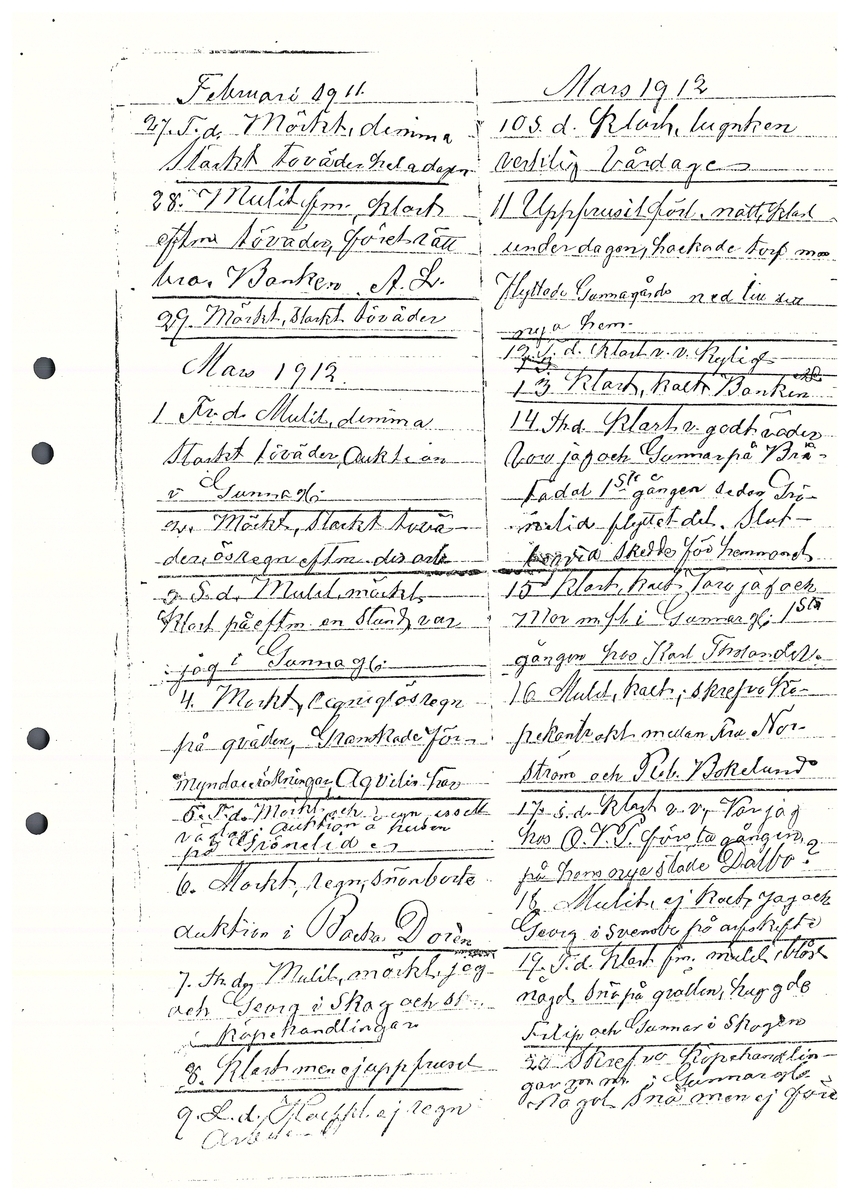 Februari 1911.
27. T.d. Mörkt, dimma
Starkt töväder hela dagen
28. Mulit fm. klart
eftm töväder, föret rätt
bra. Banken. A. L.
29. Mörkt, starkt töväder
Mars 1912.
1 Fr.d. Mulit, dimma
starkt töväder, Auktion
i Gunna
2. Mörkt, Starkt tövä-
der, ösregn eftm.
3 S.d. Mulit, mörkt
klart på eftm. en stund, var
jag i Gunna
4. Mörkt, ösregn
på qvällen, Granskade för-
myndareräkningar, Aqvilis
5. T.d. Mörkt och regn
Auktion å husen
på Grönelid
6. Mörkt, regn, snön borta
Auktion i Backa Dorën
7. Th.d. Mulit, mörkt, jag
och Georg i Skog och
köpehandlingar
8. Klart men ej uppfruset
9. L.d. ej regn
Mars 1912
10 S. d. Klart, lugnt en
verklig Vårdag
11 Uppfruset förl. natt, klart
under dagen, hackade torf
flyttade Gunnagårds ned till sitt
nya hem.
12. T. d. Klart v. v. Kyligt
13
13. Klart, kallt Banken
14. Th.d. Klart v. godt väder
Voro jag och Gunnar på Brä-
tadal 1sta gången sedan Grö-
nelid flyttet dit. Slut-
skedde för hemmanet
15 Klart, kallt, Voro jag och
Mor m.fl. i Gunnar 1sta
gången hos Karl Tholander.
16 Mulit, kallt, skrefvo Kö-
pekontrakt mellan Fru Nor-
ström och Rob. Bokelund
17. S.d. Klart v. v. Var jag
hos O.V.S. första gången
på hans nya ställe Dalbo?
18 Mulit, ej kallt, Jag och
Georg i Svensbo på arfskifte
19. T.d. Klart fm. mulit, blåst
något snö på qvällen, huggde
Filip och Gunnar i Skogen
20 Skrefvo Köpehandlin-
gar m.m. i Gunnar
Något Snö men ej före